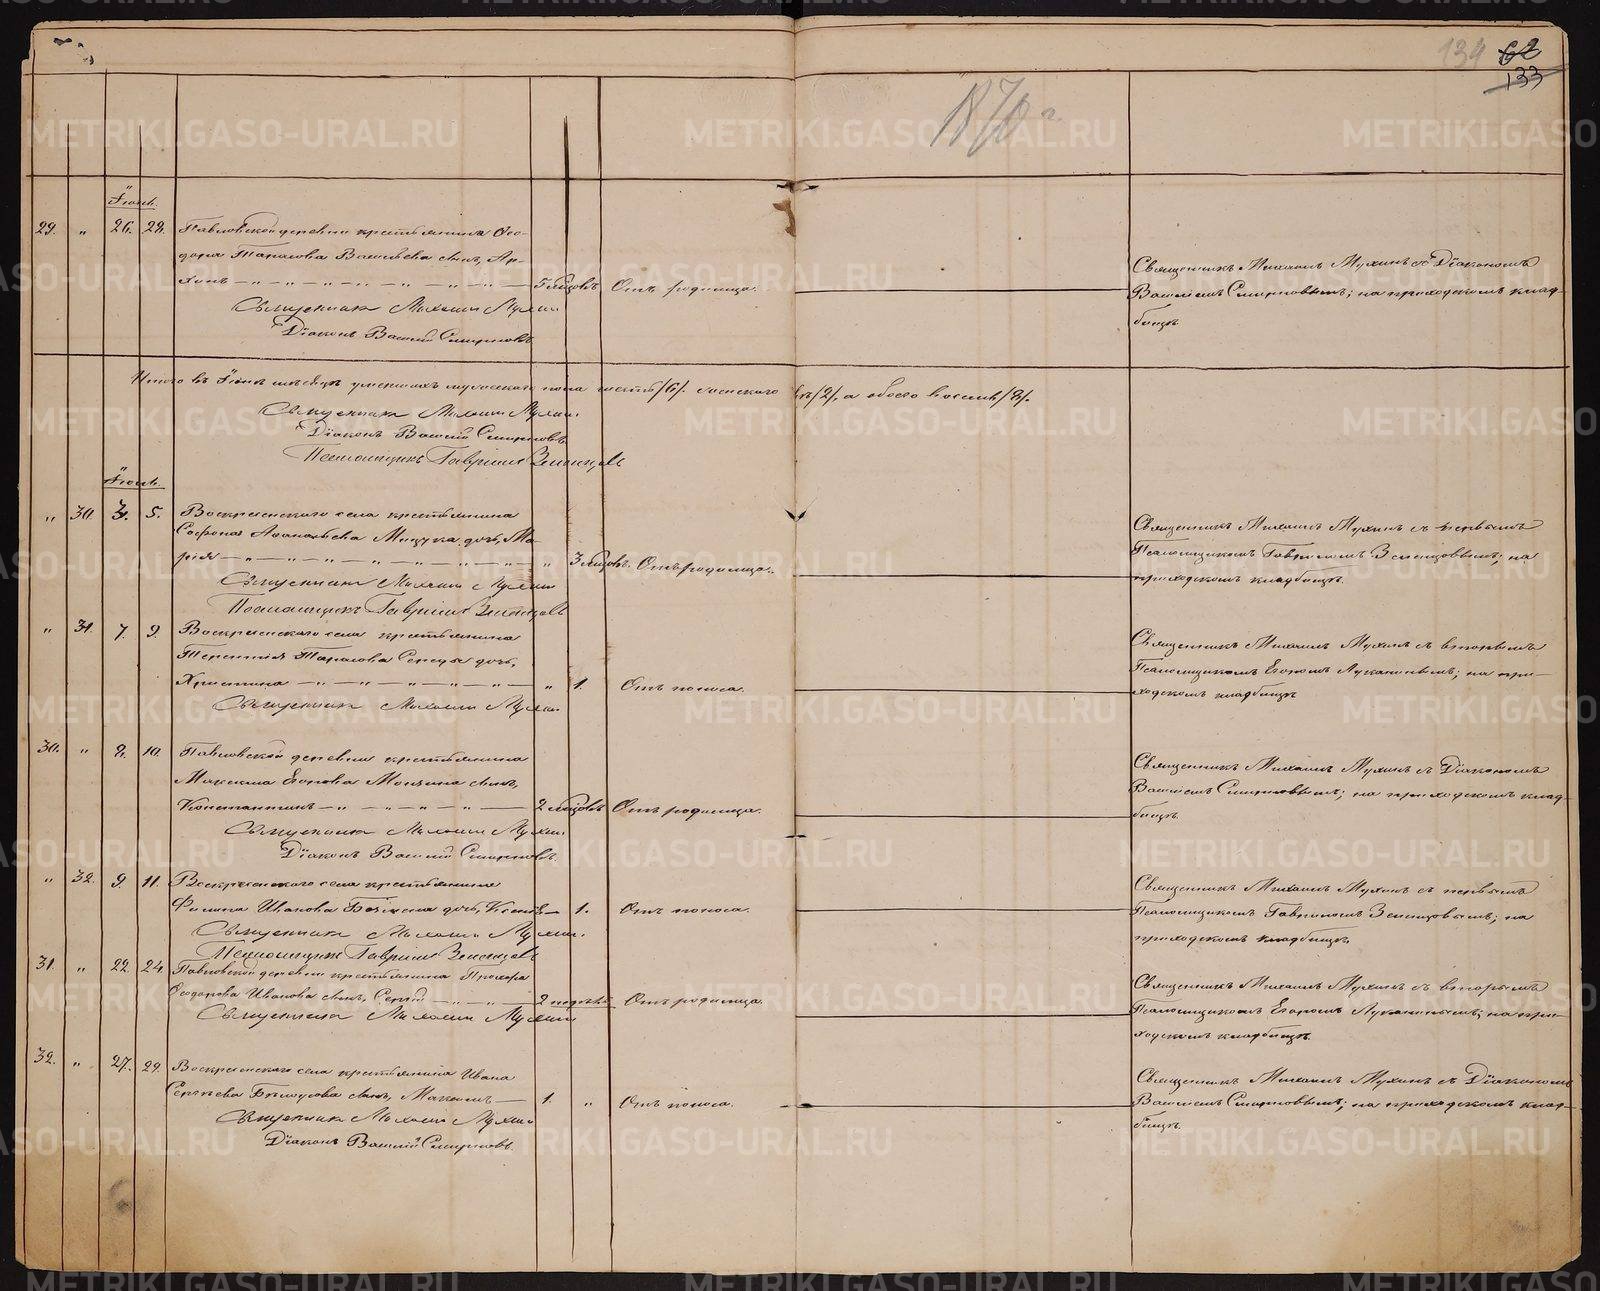 134 62
133
1870 г.
Іюнь.
29. " 26. 28. Павловской деревни крестьянина Ѳео-
дора Тарасова Васильева сынъ, Ар-
хипъ 5 мѣсяцовъ Отъ родимца.
Священникъ Михаилъ Мухинъ съ Діакономъ
Василіемъ Смирновымъ; на приходскомъ клад-
бищѣ.
Священникъ Михаилъ Мухин.
Діаконъ Василій Смирновъ
Итого въ Іюнѣ мѣсяцѣ умершихъ мужескаго пола шесть /6/. женскаго /2/, а обоего восемь /8/.
Священникъ Михаилъ Мухин.
Діаконъ Василій Смирновъ
Псаломщикъ Гавріилъ
Іюль.
" 30. 3. 5. Воскресенскаго села крестьянина
дочь, Ма-
рія " 3 мѣсяцовъ. Отъ родимца.
Священникъ Михаилъ Мухинъ съ первымъ
Псаломщикомъ Гавріиломъ; на
приходскомъ кладбищѣ.
Священникъ Михаилъ Мухин
Псаломщикъ Гавріилъ
" 31. 7. 9. Воскресенскаго села крестьянина
Терентія Тарасова дочь,
Христина " 1. Отъ поноса.
Священникъ Михаилъ Мухинъ съ вторымъ
Псаломщикомъ Егоромъ Лукинымъ; на при-
ходскомъ кладбищѣ
Священникъ Михаилъ Мухин
30. " 8. 10. Павловской деревни крестьянина
Максима Егорова сынъ,
Константинъ 2 мѣсяцовъ Отъ родимца.
Священникъ Михаилъ Мухинъ съ Діакономъ
Василіемъ Смирновымъ; на приходскомъ клад-
бищѣ.
Священникъ Михаилъ Мухин.
Діаконъ Василій Смирновъ.
" 32. 9. 11. Воскресенскаго села крестьянина
Филипа Иванова дочь, 1. Отъ поноса.
Священникъ Михаилъ Мухинъ съ первымъ
Псаломщикомъ Гавріиломъ; на
приходскомъ кладбищѣ.
Священникъ Михаилъ Мухин.
Псаломщикъ Гавріилъ
31. " 22. 24. Павловской деревни крестьянина Прохора
Ѳеодорова Иванова сынъ, Сергій 2 недѣль Отъ родимца.
Священникъ Михаилъ Мухинъ съ вторымъ
Псаломщикомъ Егоромъ Лукинымъ; на при-
ходскомъ кладбищѣ.
Священникъ Михаилъ Мухин
32. " 27. 29. Воскресенскаго села крестьянина Ивана
Сергѣева Бѣлоусова сынъ, Максимъ 1. " Отъ поноса.
Священникъ Михаилъ Мухинъ съ Діакономъ
Василіемъ Смирновымъ; на приходскомъ клад-
бищѣ.
Священникъ Михаилъ Мухин
Діаконъ Василій Смирновъ.
METRIKI.GASO-URAL.RU